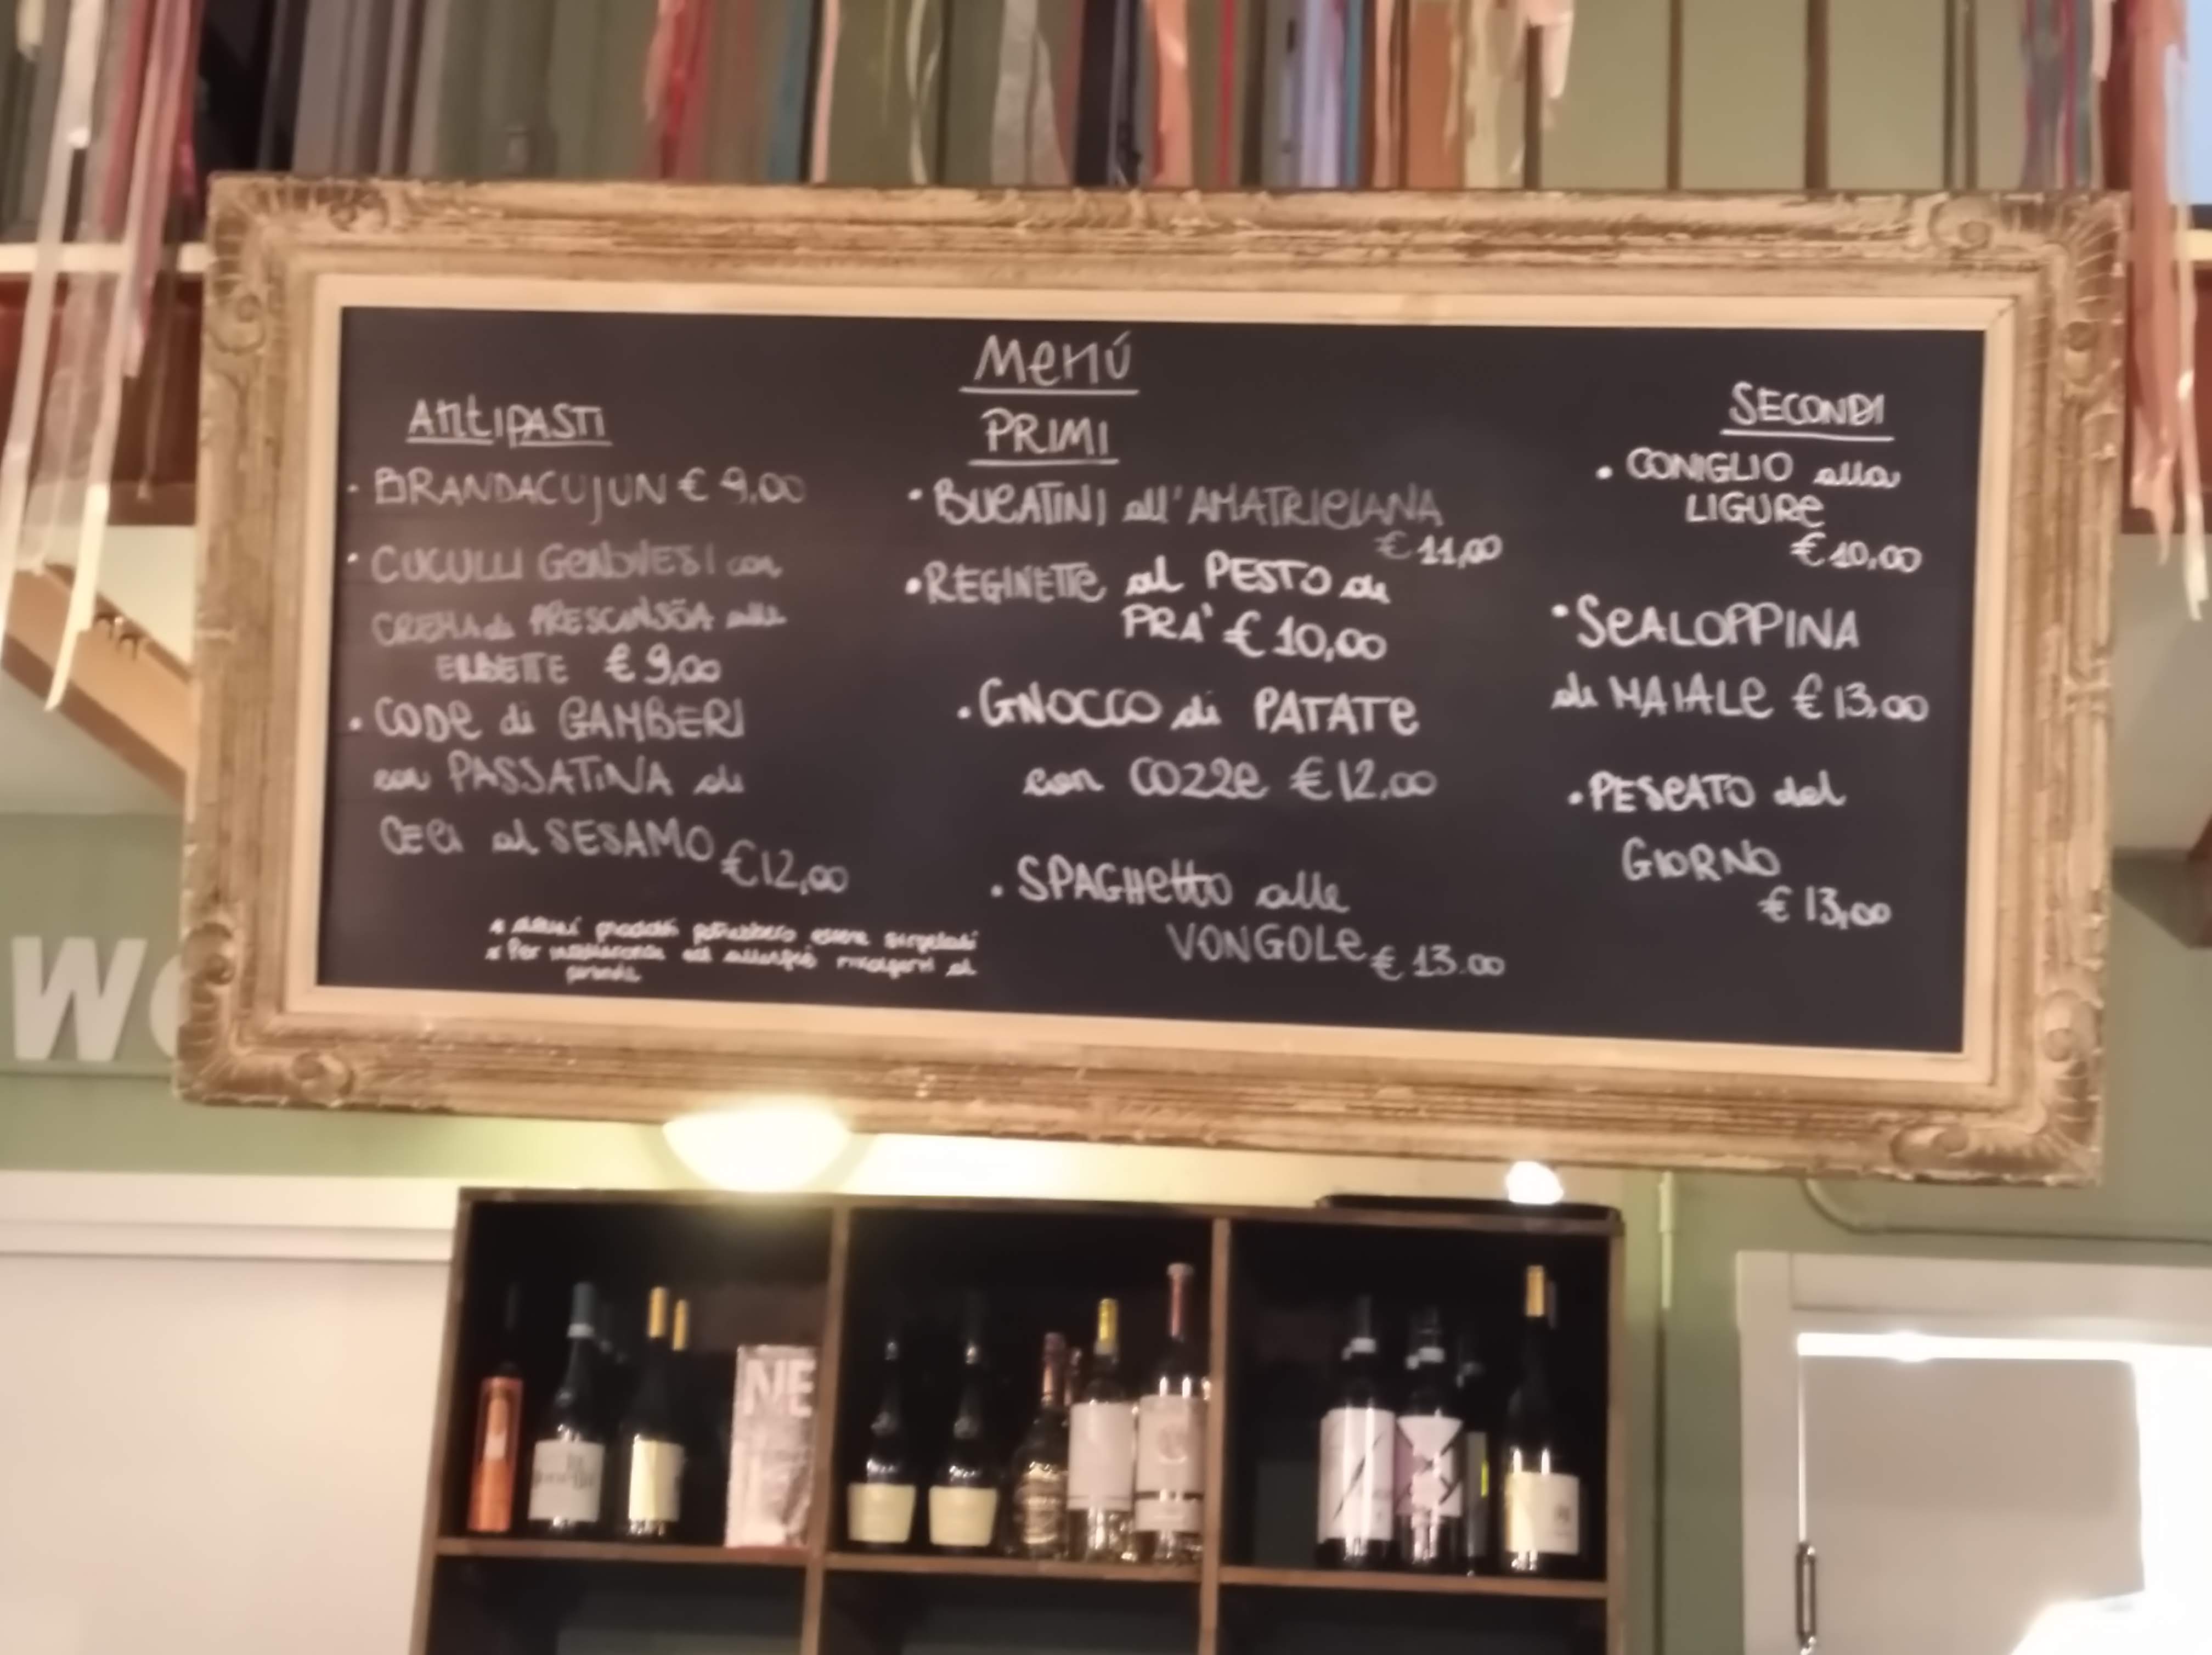 Menú
Antipasti
• BRANDACUJUN € 9,00
• CUCULLI GENOVESI con
CREMA di PRESCINSÖA alle
ERBETTE € 9,00
• CODE di GAMBERI
con PASSATINA di
CECI al SESAMO € 12,00
* alcuni prodotti potrebbero essere surgelati
* Per intolleranze ed allergie rivolgersi al
PRIMI
• BUCATINI all'AMATRICIANA
€ 11,00
• REGINETTE al PESTO di
PRA' € 10,00
• GNOCCO di PATATE
con COZZE € 12,00
• SPAGHETTO alle
VONGOLE € 13.00
SECONDI
• CONIGLIO alla
LIGURE
€ 10,00
• SCALOPPINA
di MAIALE € 13,00
• PESCATO del
GIORNO
€ 13,00
W
NE